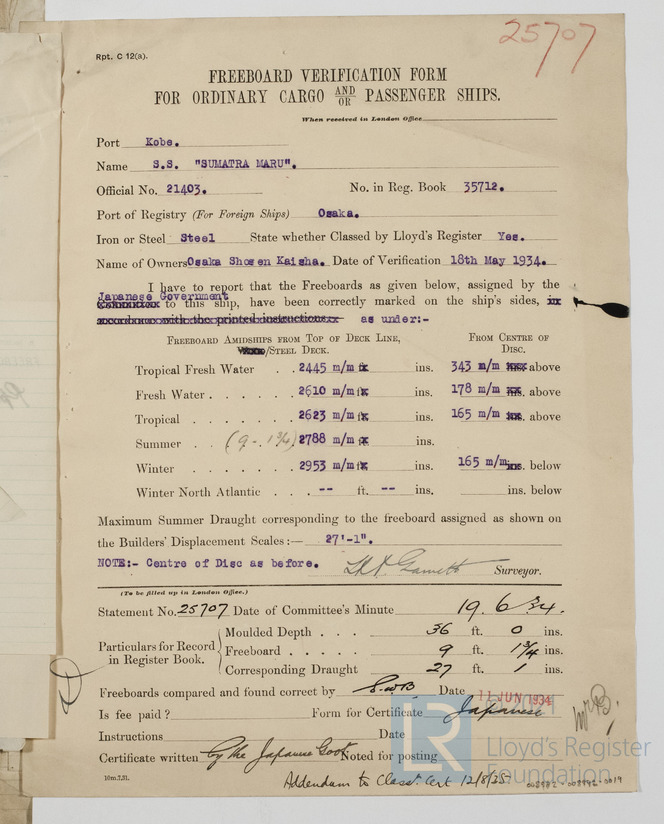 25707
Rpt. C 12(a).
FREEBOARD VERIFICATION FORM
FOR ORDINARY CARGO AND/OR PASSENGER SHIPS.
When received in London Office
Port Kobe.
Name S.S. "SUMATRA MARU".
Official No. 21403. No. in Reg. Book 35712.
Port of Registry (For Foreign Ships) Osaka.
Iron or Steel Steel State whether Classed by Lloyd's Register Yes.
Name of Owners Osaka Shosen Kaisha. Date of Verification 18th May 1934.
I have to report that the Freeboards as given below, assigned by the
Japanese Government
to this ship, have been correctly marked on the ship's sides, in
accordance with the printed instructions as under:-
FREEBOARD AMIDSHIPS FROM TOP OF DECK LINE, FROM CENTRE OF
/STEEL DECK. DISC.
Tropical Fresh Water . . 2445 m/m ins. 343 m/m above
Fresh Water . . . . . . 2610 m/m ins. 178 m/m ins. above
Tropical . . . . . . . 2623 m/m ins. 165 m/m ins. above
Summer . . (9-1¾) 2788 m/m ins.
Winter . . . . . . . 2953 m/m ins. 165 m/m ins. below
Winter North Atlantic . . . -- ft. -- ins. ins. below
Maximum Summer Draught corresponding to the freeboard assigned as shown on
the Builders' Displacement Scales :— 27'-1".
NOTE:- Centre of Disc as before. Surveyor.
(To be filled up in London Office.)
Statement No. 25707 Date of Committee's Minute 19.6.34.
Particulars for Record in Register Book.
Moulded Depth . . . 36 ft. 0 ins.
Freeboard . . . . . 9 ft. 1¾ ins.
Corresponding Draught 27 ft. 1 ins.
Freeboards compared and found correct by Date 11 JUN 1934
Is fee paid ? Form for Certificate Japanese
Instructions Date
Certificate written by the Japanese Govt Noted for posting
10m.7,31.
Addendum to Class. Cert 12/8/35
LR
Lloyd's Register
Foundation
002992-002992-0019